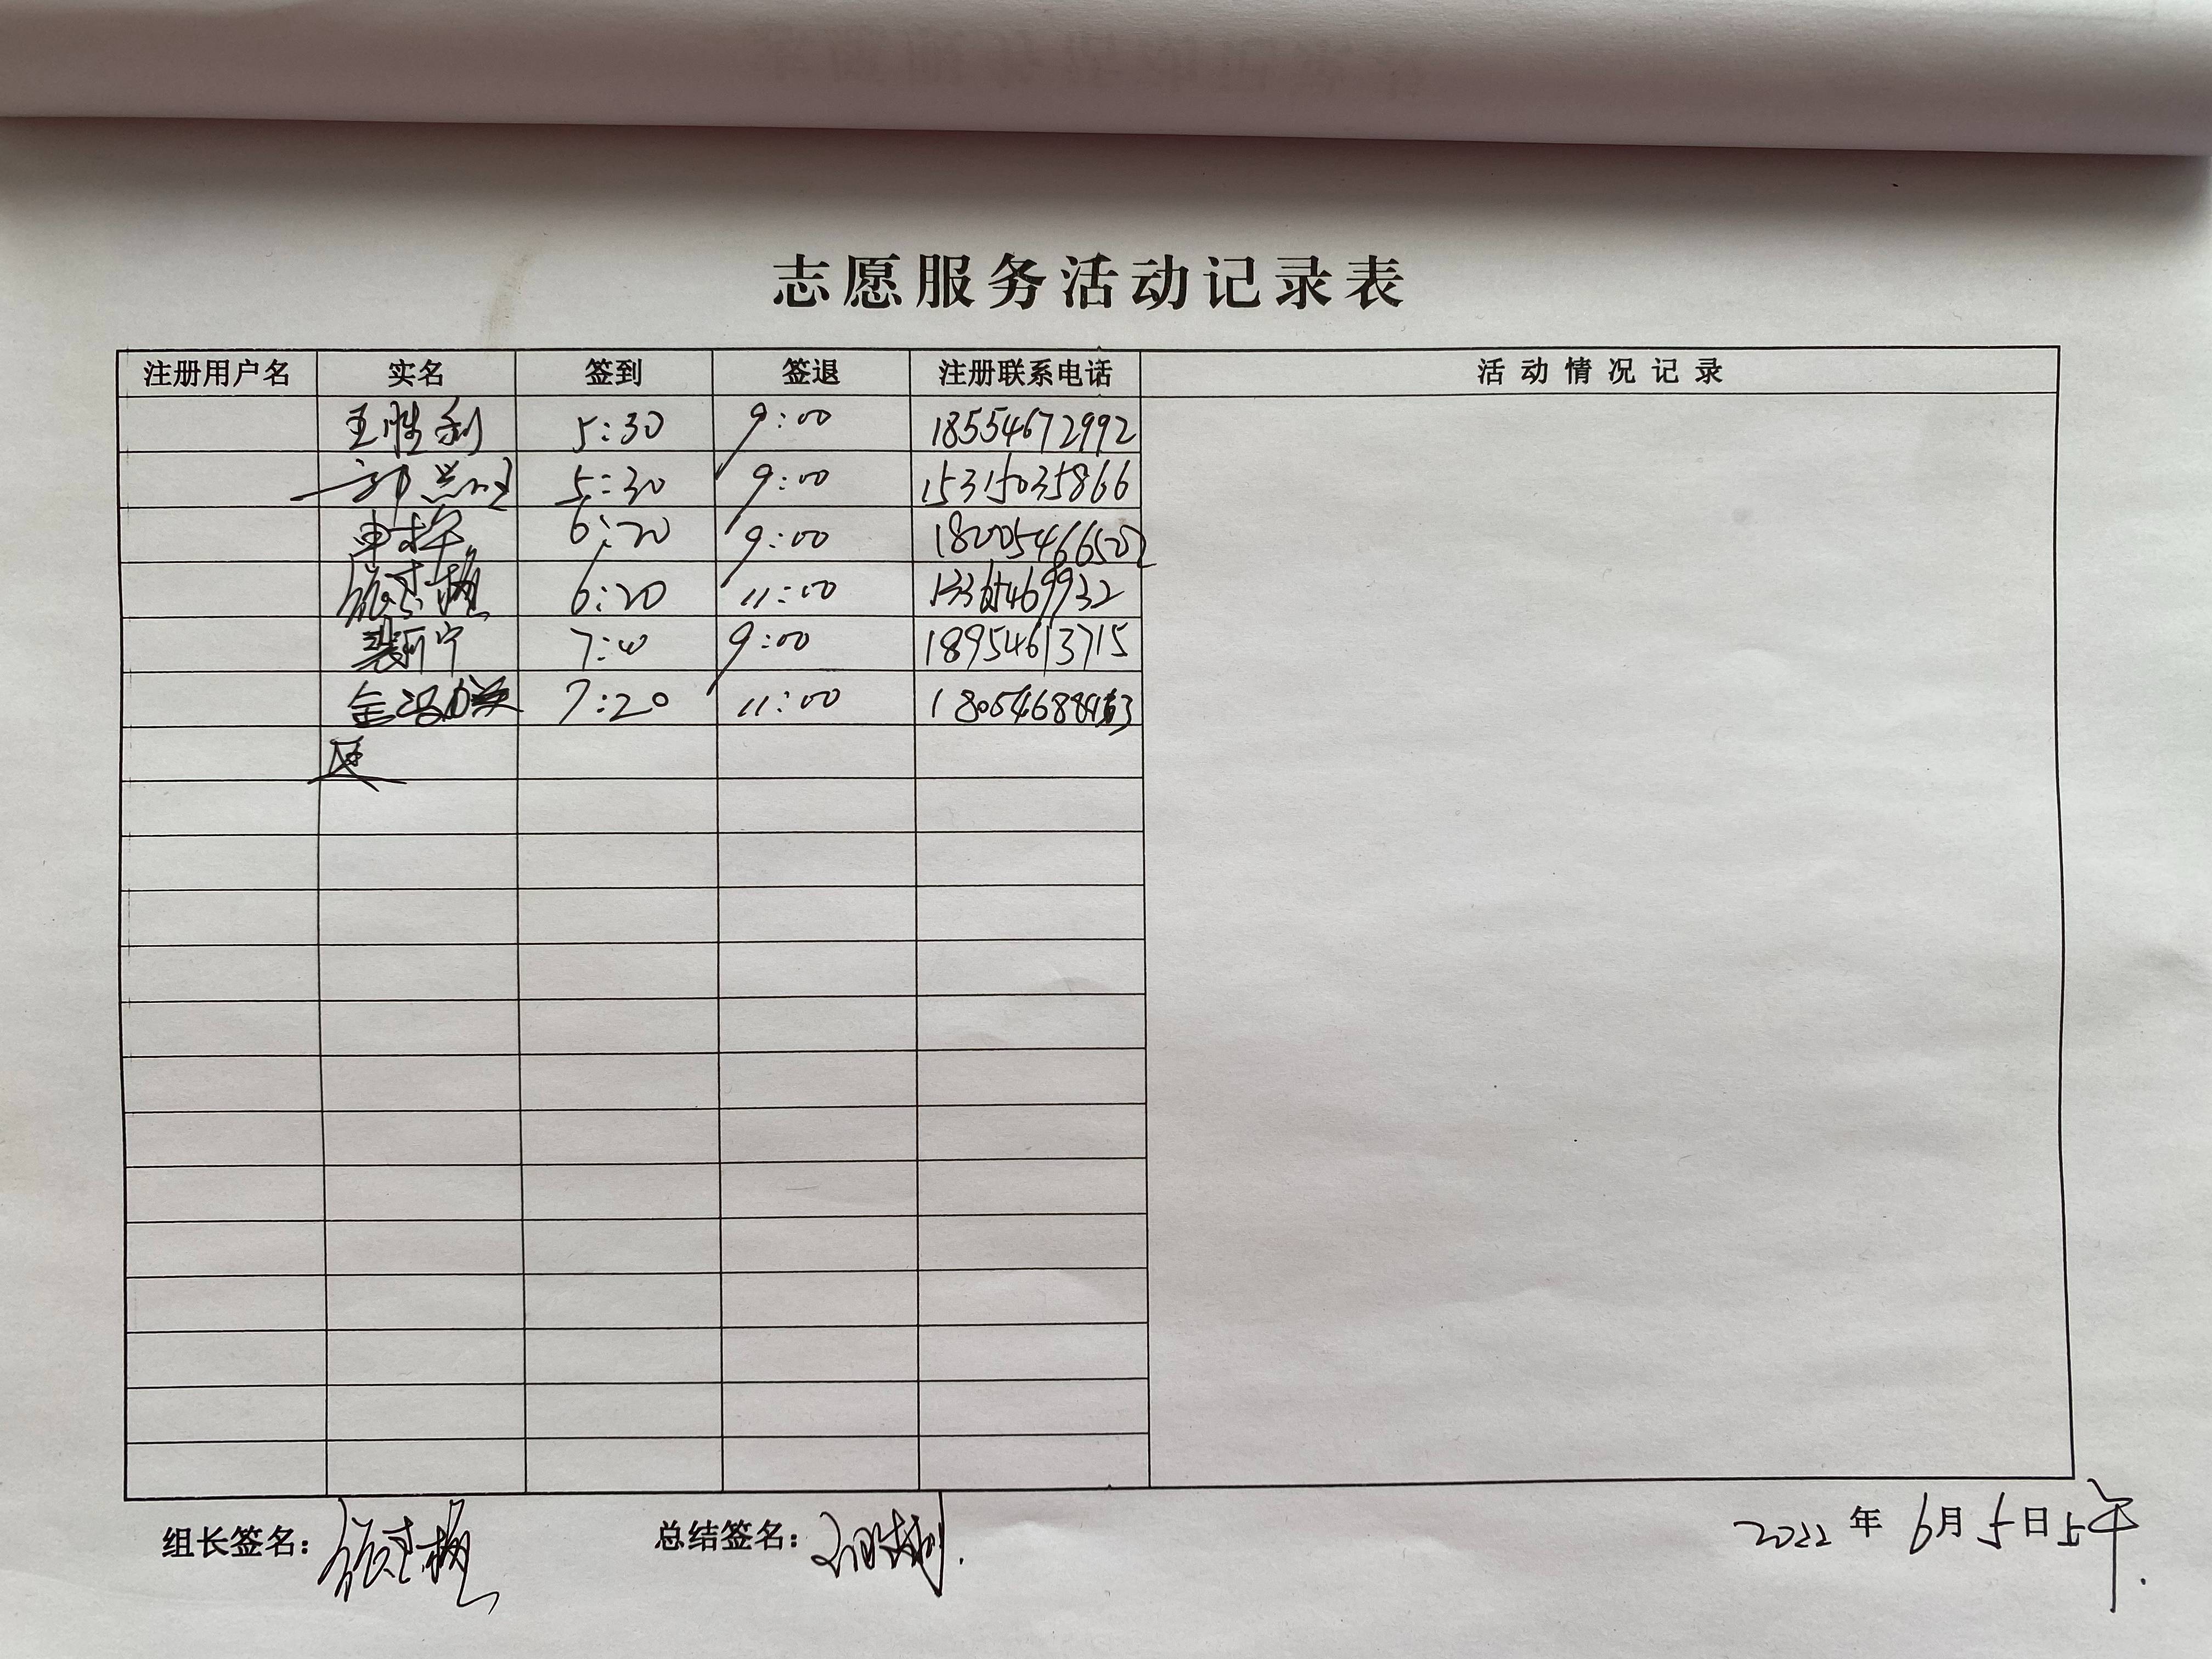 志愿服务活动记录表
注册用户名 实名 签到 签退 注册联系电话 活动情况记录
王胜利 5:30 9:00 18554672992
5:30 9:00 15315035866
6:20 9:00 18005466502
6:20 11:00
7:00 9:00 18954613715
7:20 11:00
组长签名： 总结签名： 2022年6月5日上午.